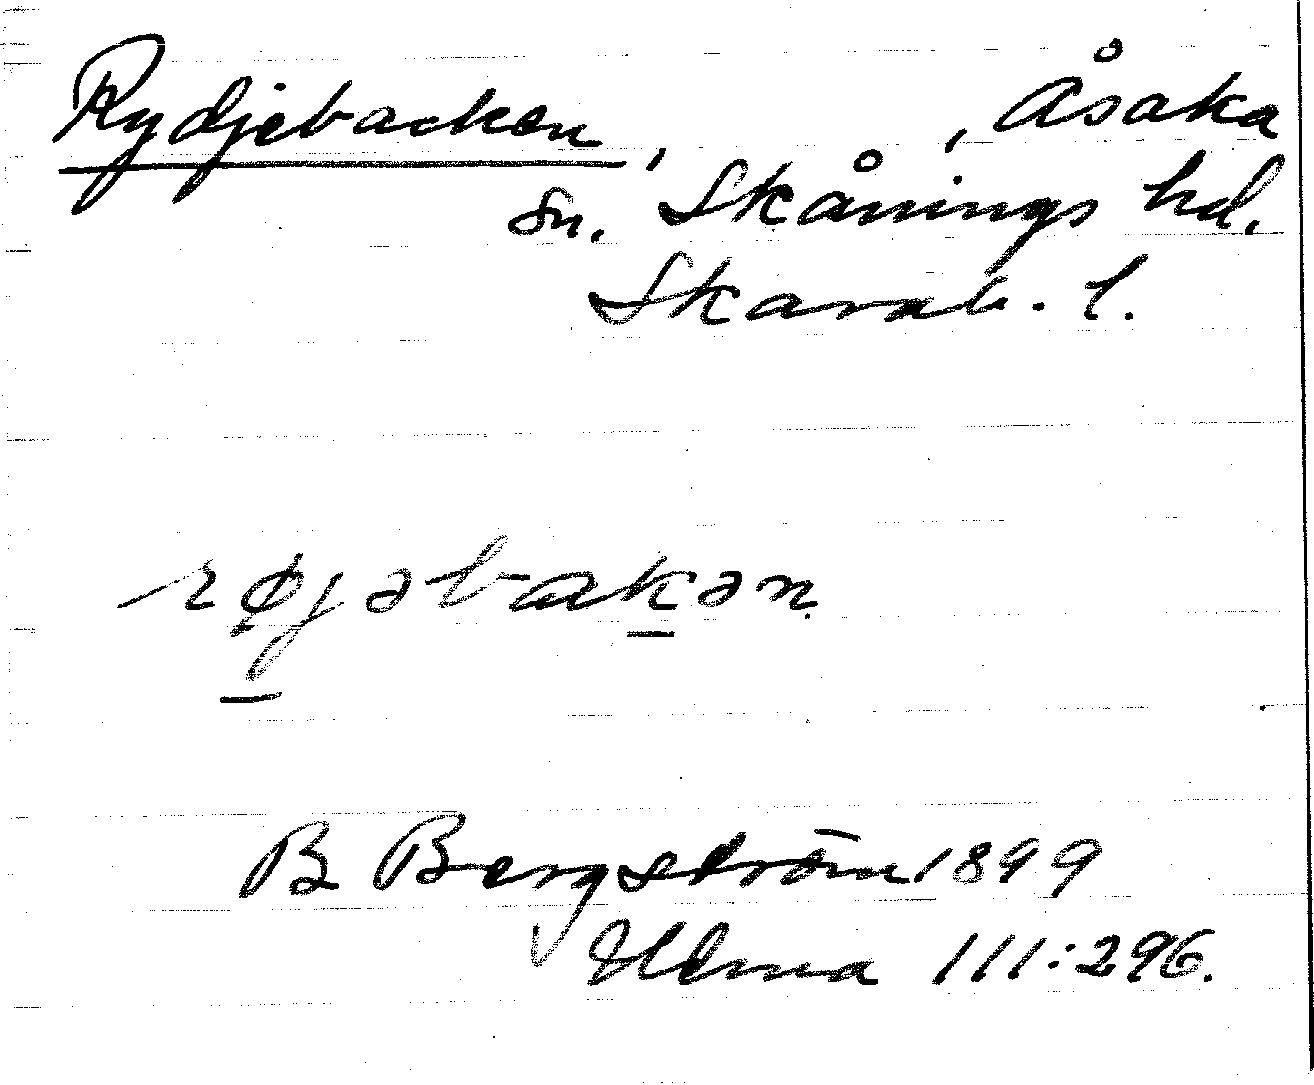 Rydjebacken, , Åsaka
sn. Skånings hd.
Skarab. l.
røjəbakən.
B Bergström 1899
Ulma 111:296.